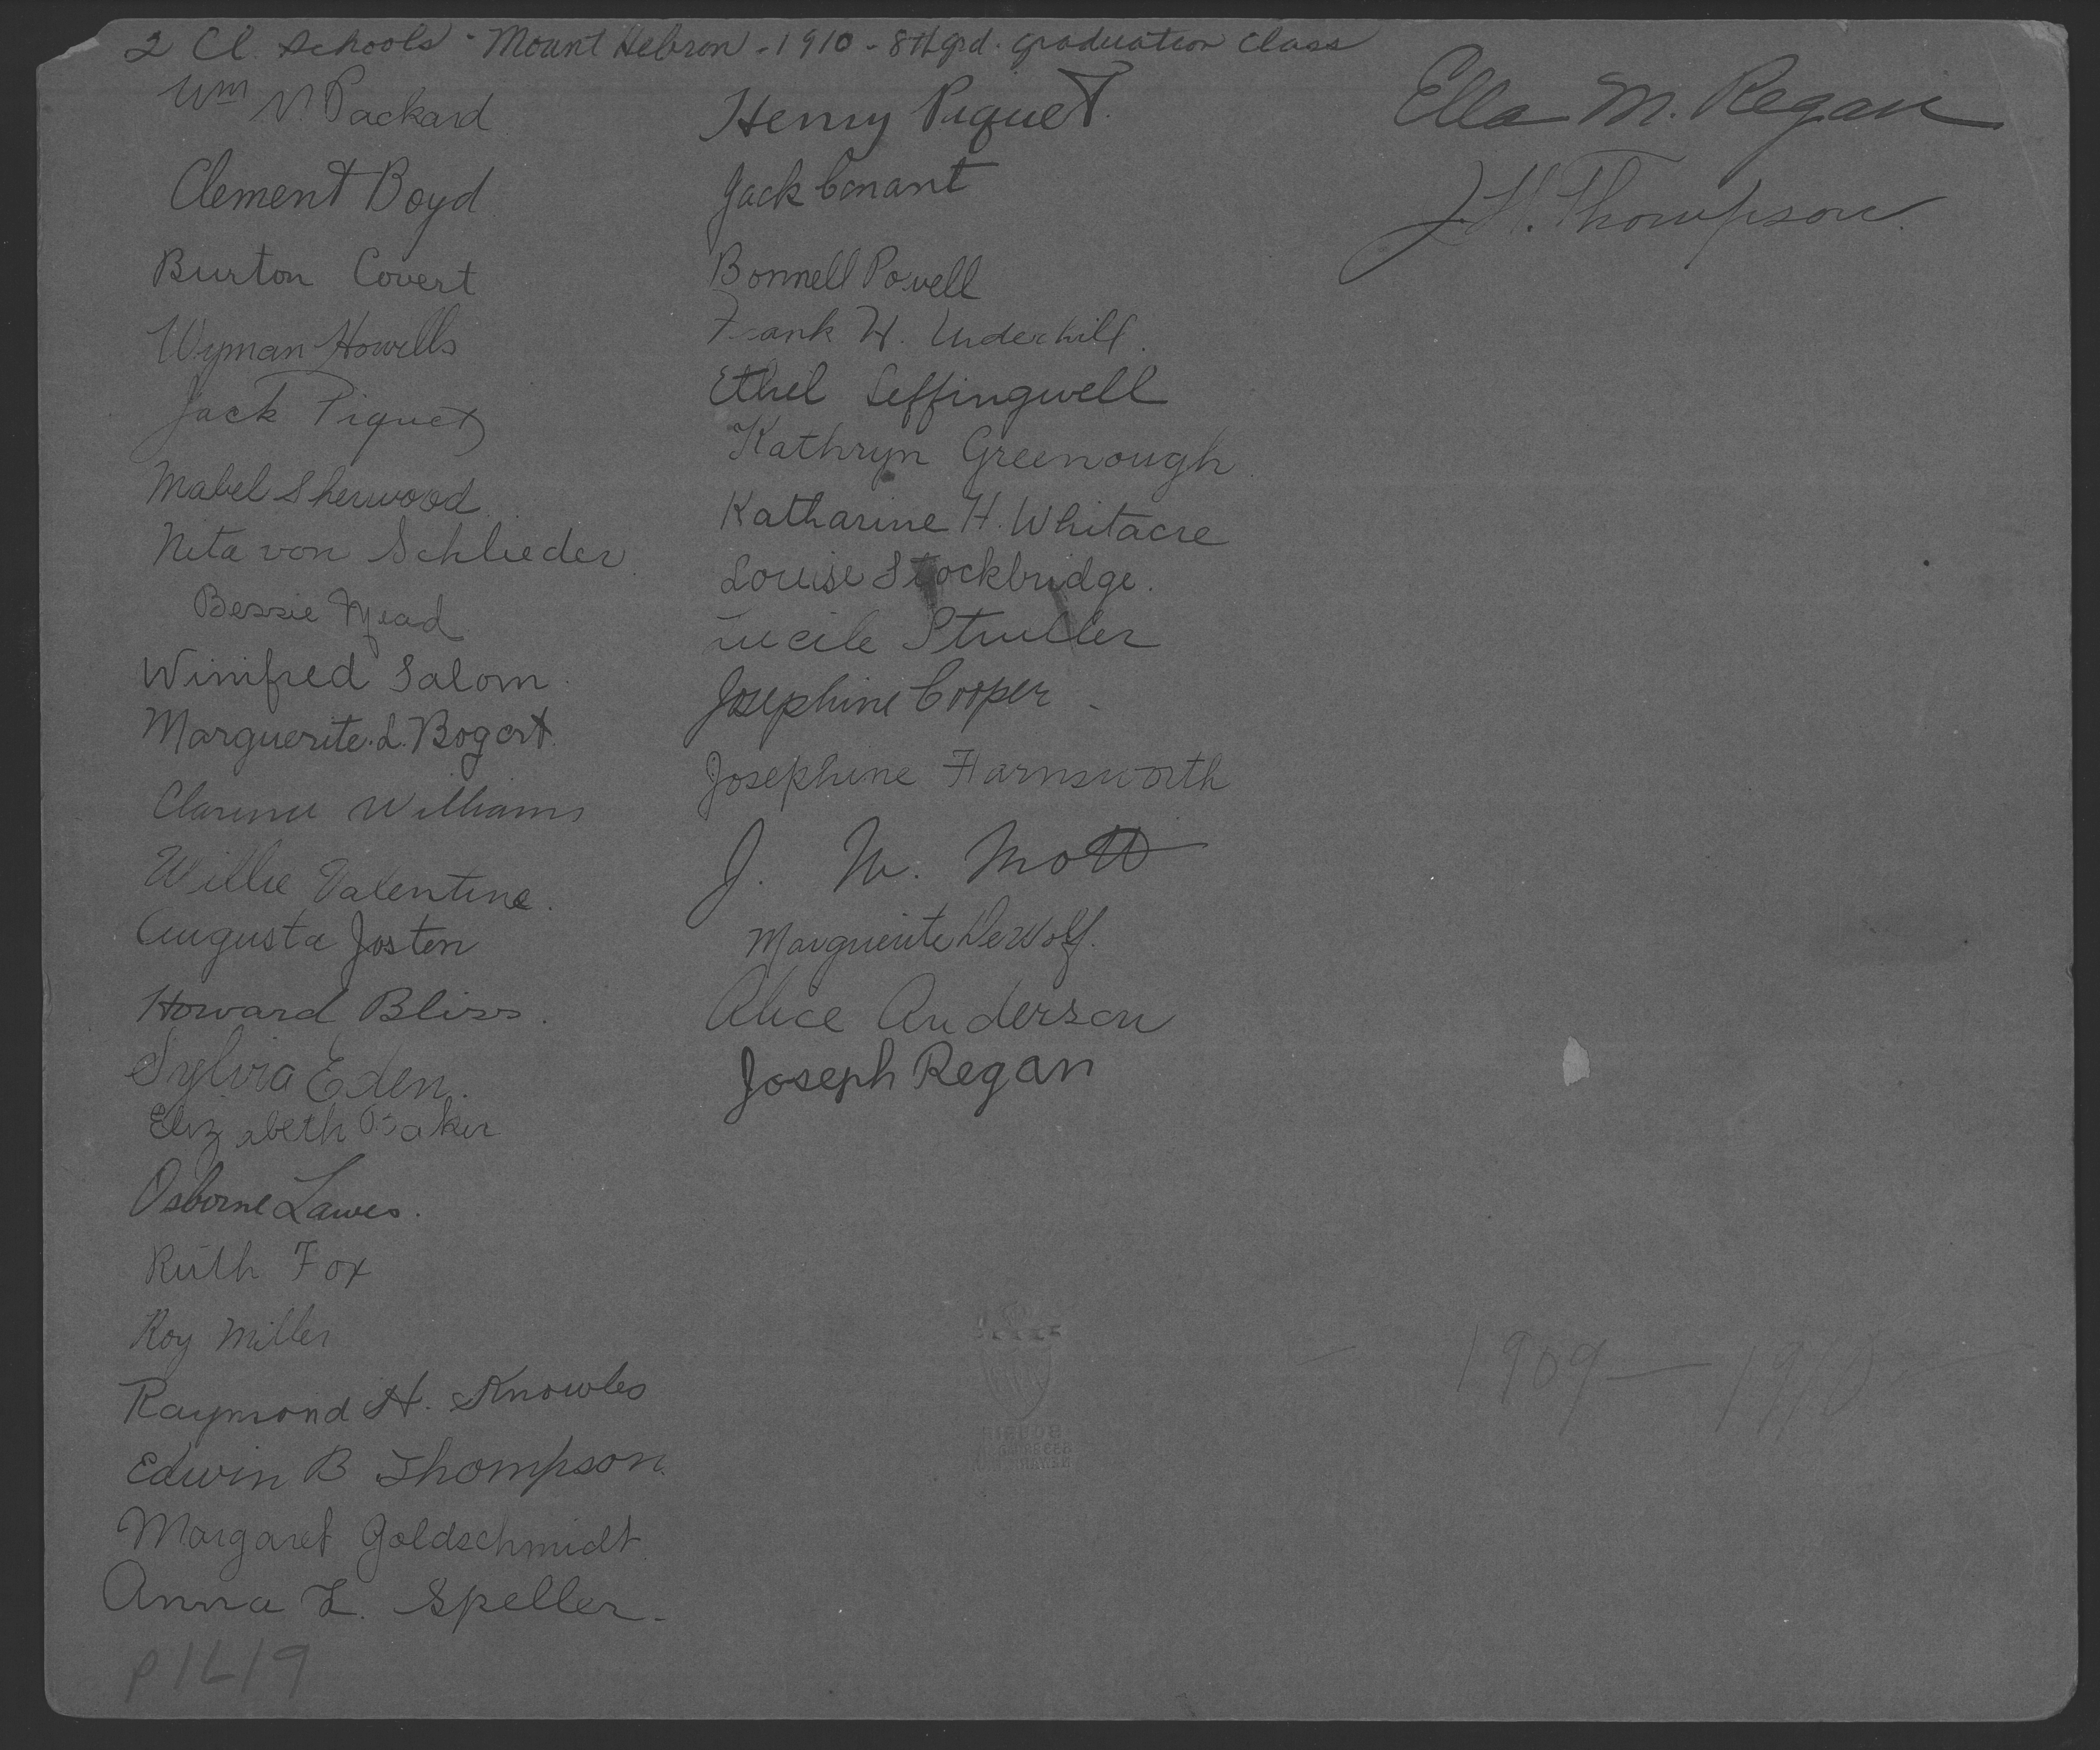 2 Cl. Schools - Mount Hebron - 1910 - 8th grd. graduation class
Wm V. Packard
Clement Boyd
Burton Covert
Wyman Howells
Jack Piquet
Mabel Sherwood
Neta von Schlieder
Bessie Mead
Winifred Salom
Marguerite L. Bogert
Clarence Williams
Willie Valentine.
Augusta Josten
Howard Bliss.
Sylvia Eden.
Elizabeth Baker
Osborne Lawes.
Ruth Fox
Roy Miller
Raymond H. Knowles
Edwin B Thompson.
Margaret Goldschmidt
Anna L. Speller.
P1619
Henry Piquet.
Jack Conant
Bonnell Powell
Frank W. Underhill.
Ethel Leffingwell
Kathryn Greenough
Katharine H. Whitacre
Louise Stockbridge.
Lucile
Josephine Cooper
Josephine Farnsworth
J. W. Mott
Marguerite DeWolf.
Alice Anderson
Joseph Regan
Ella M. Regan
J. H. Thompson.
1909 — 1910